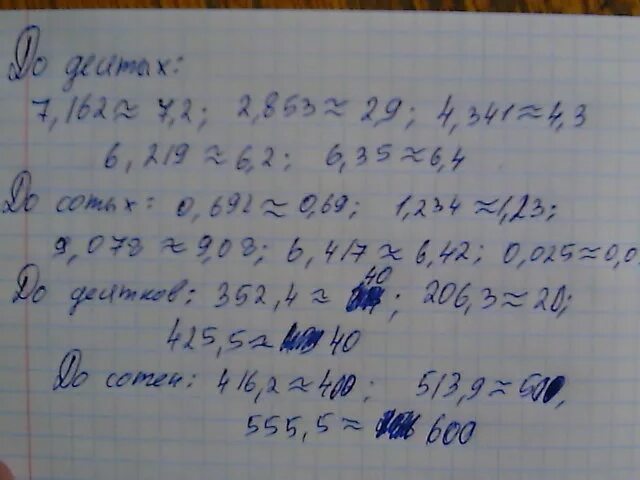 До десятых:
7,162≈ 7,2; 2,853≈ 2,9; 4,341≈4,3
6,219≈6,2; 6,35≈6,4
До сотых: 0,692≈0,69; 1,234≈1,23;
9,078≈9,08; 6,417≈6,42; 0,025≈0,0
До десятков: 352,4≈ 40; 206,3≈20;
425,5≈ 40
До сотен: 416,2≈400; 513,9≈500,
555,5≈ 600